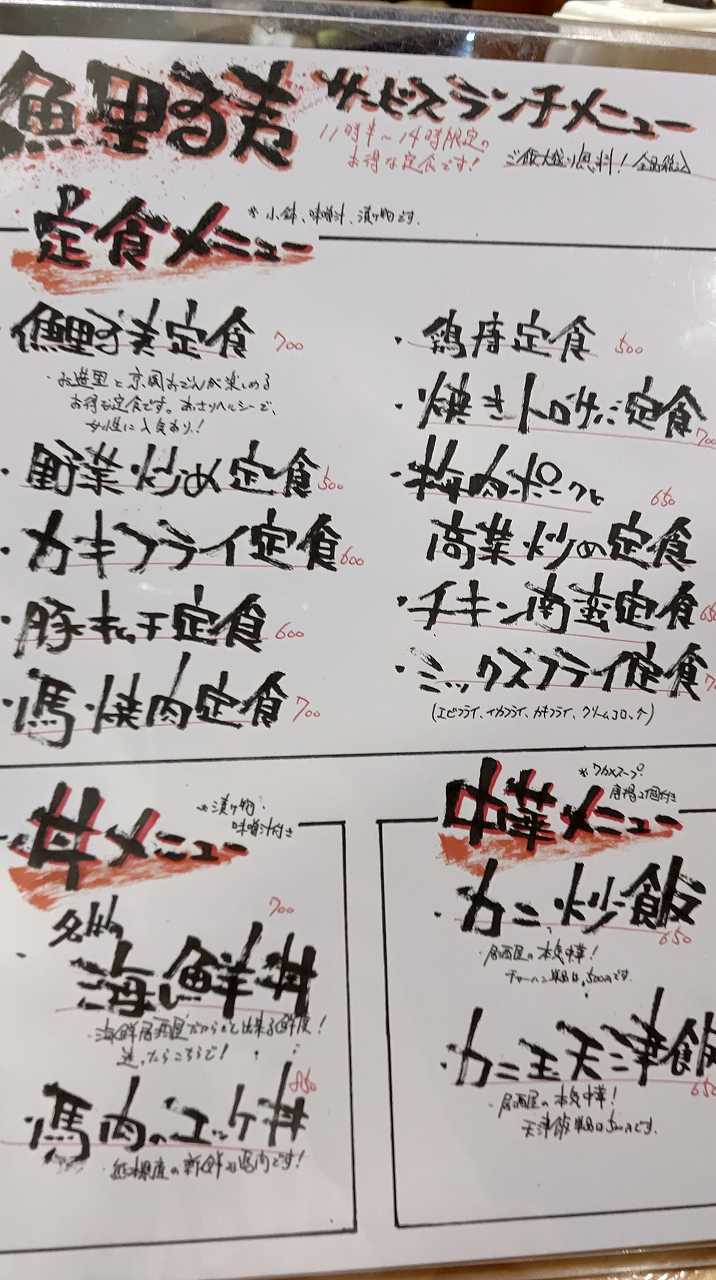 魚里る美 サービスランチメニュー
11時半〜14時限定の
お得な定食です!
ご飯大盛り無料!全品税込
定食メニュー
*小鉢、味噌汁、漬け物です.
・魚里る美定食 700
・お造里と京風おでんが楽しめる
お得な定食です。あっさりヘルシーで、
女性に人気あり!
・野菜炒め定食 500
・カキフライ定食 600
・豚キムチ定食 600
・馬焼肉定食 700
・鶏唐定食 500
・焼きトロサバ定食 700
・梅肉ポークと 650
高菜炒め定食
・チキン南蛮定食 650
・ミックスフライ定食
(エビフライ、イカフライ、カキフライ、クリームコロッケ)
丼メニュー
*漬け物・
味噌汁付き
・名物 700
海鮮丼
・海鮮居酒屋だからこそ出来る鮮度!
迷ったらこちらで!
・馬肉のユッケ丼 850
・熊本県産の新鮮な馬肉です!
中華メニュー
*ワカメスープ・
唐揚2個付き
・カニ炒飯 650
・居酒屋の本気中華!
チャーハン単品は、500円です.
・カニ玉天津飯 650
・居酒屋の本気中華!
天津飯単品は500円です.